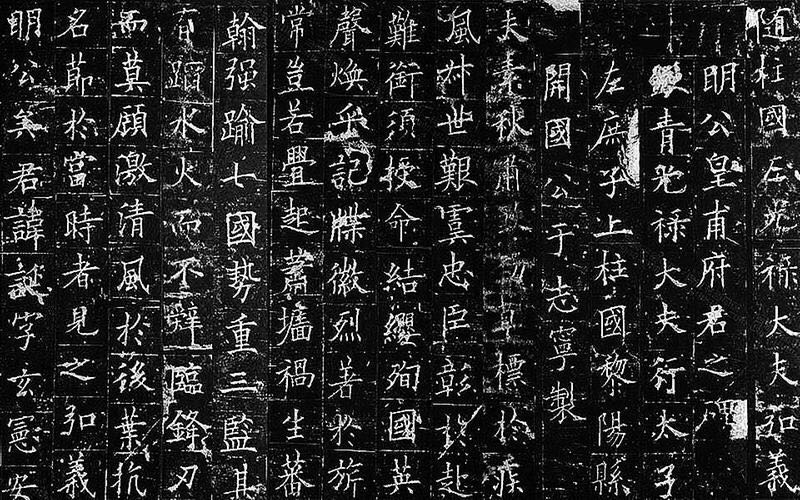 隨柱國左光祿大夫弘義
明公皇甫府君之碑
銀青光祿大夫行太子
左庶子上柱國黎陽縣
開國公于志寧製
夫素秋肅煞勁草標於疾
風叶世艱虞忠臣彰於赴
難銜須授命結纓殉國英
聲煥乎記牒徽烈著於旂
常豈若舋起蕭墻禍生蕃
翰强踰七國勢重三監其
有蹈水火而不辭臨鋒刃
而莫顧激清風於後葉抗
名節於當時者見之弘義
明公矣君諱誕字玄憲安